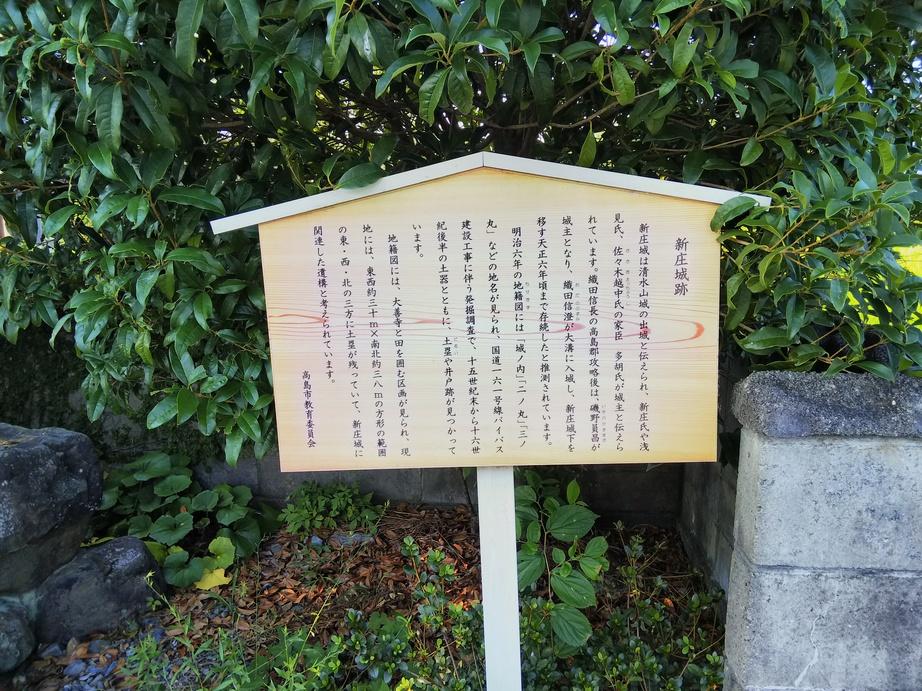 新庄城跡
新庄城は清水山城の出城と伝えられ、新庄氏や浅
見氏、佐々木越中氏の家臣　多胡氏が城主と伝えら
れています。織田信長の高島郡攻略後は、磯野員昌が
城主となり、織田信澄が大溝に入城し、新庄城下を
移す天正六年頃まで存続したと推測されています。
明治六年の地籍図には「城ノ内」「二ノ丸」「三ノ
丸」などの地名が見られ、国道一六一号線バイパス
建設工事に伴う発掘調査で、十五世紀末から十六世
紀後半の土器とともに、土塁や井戸跡が見つかって
います。
地籍図には、大善寺と田を囲む区画が見られ、現
地には、東西約三十m×南北約三八mの方形の範囲
の東・西・北の三方に土塁が残っていて、新庄城に
関連した遺構と考えられています。
高島市教育委員会